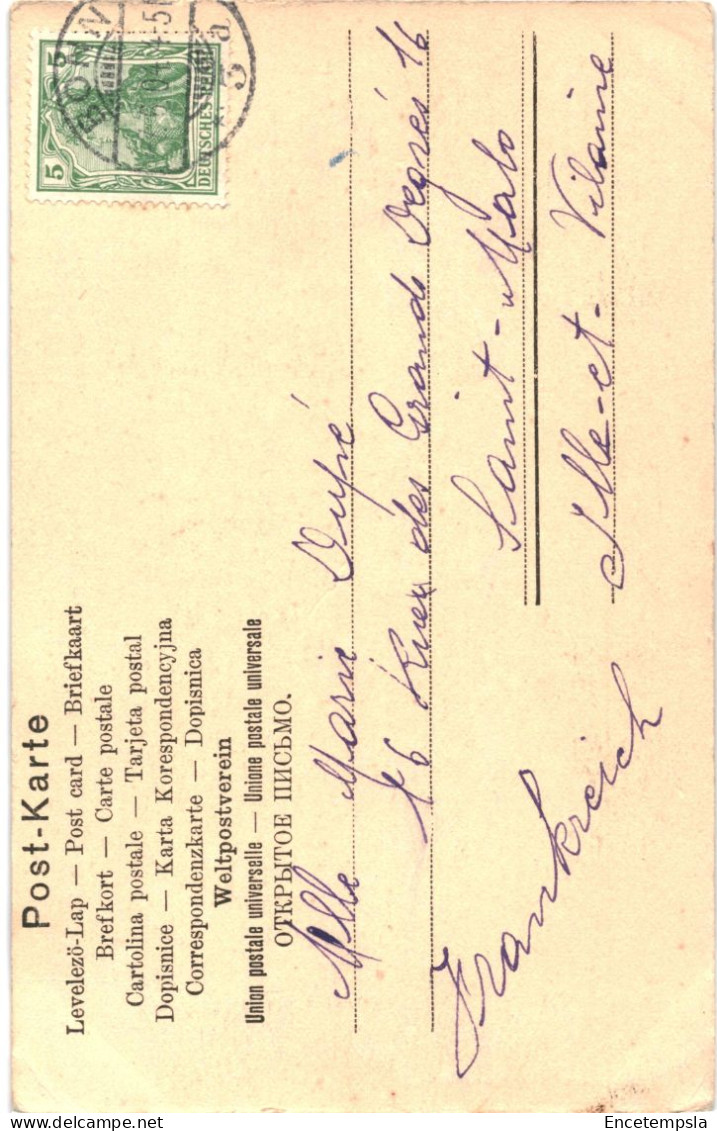 Post-Karte
Levelezö-Lap — Post card — Briefkaart
Brefkort — Carte postale
Cartolina postale — Tarjeta postal
Dopisnice — Karta Korespondencyjna
Correspondenzkarte — Dopisnica
Weltpostverein
Union postale universelle — Unione postale universale
ОТКРЫТОЕ ПИСЬМО.
BONN
5
5
DEUTSCHES REICH
Mlle Marie Dupré
16 Rue des Grands Degrés 16
Saint-Malo
Ille-et-Vilaine
Frankreich
© Encetempsla